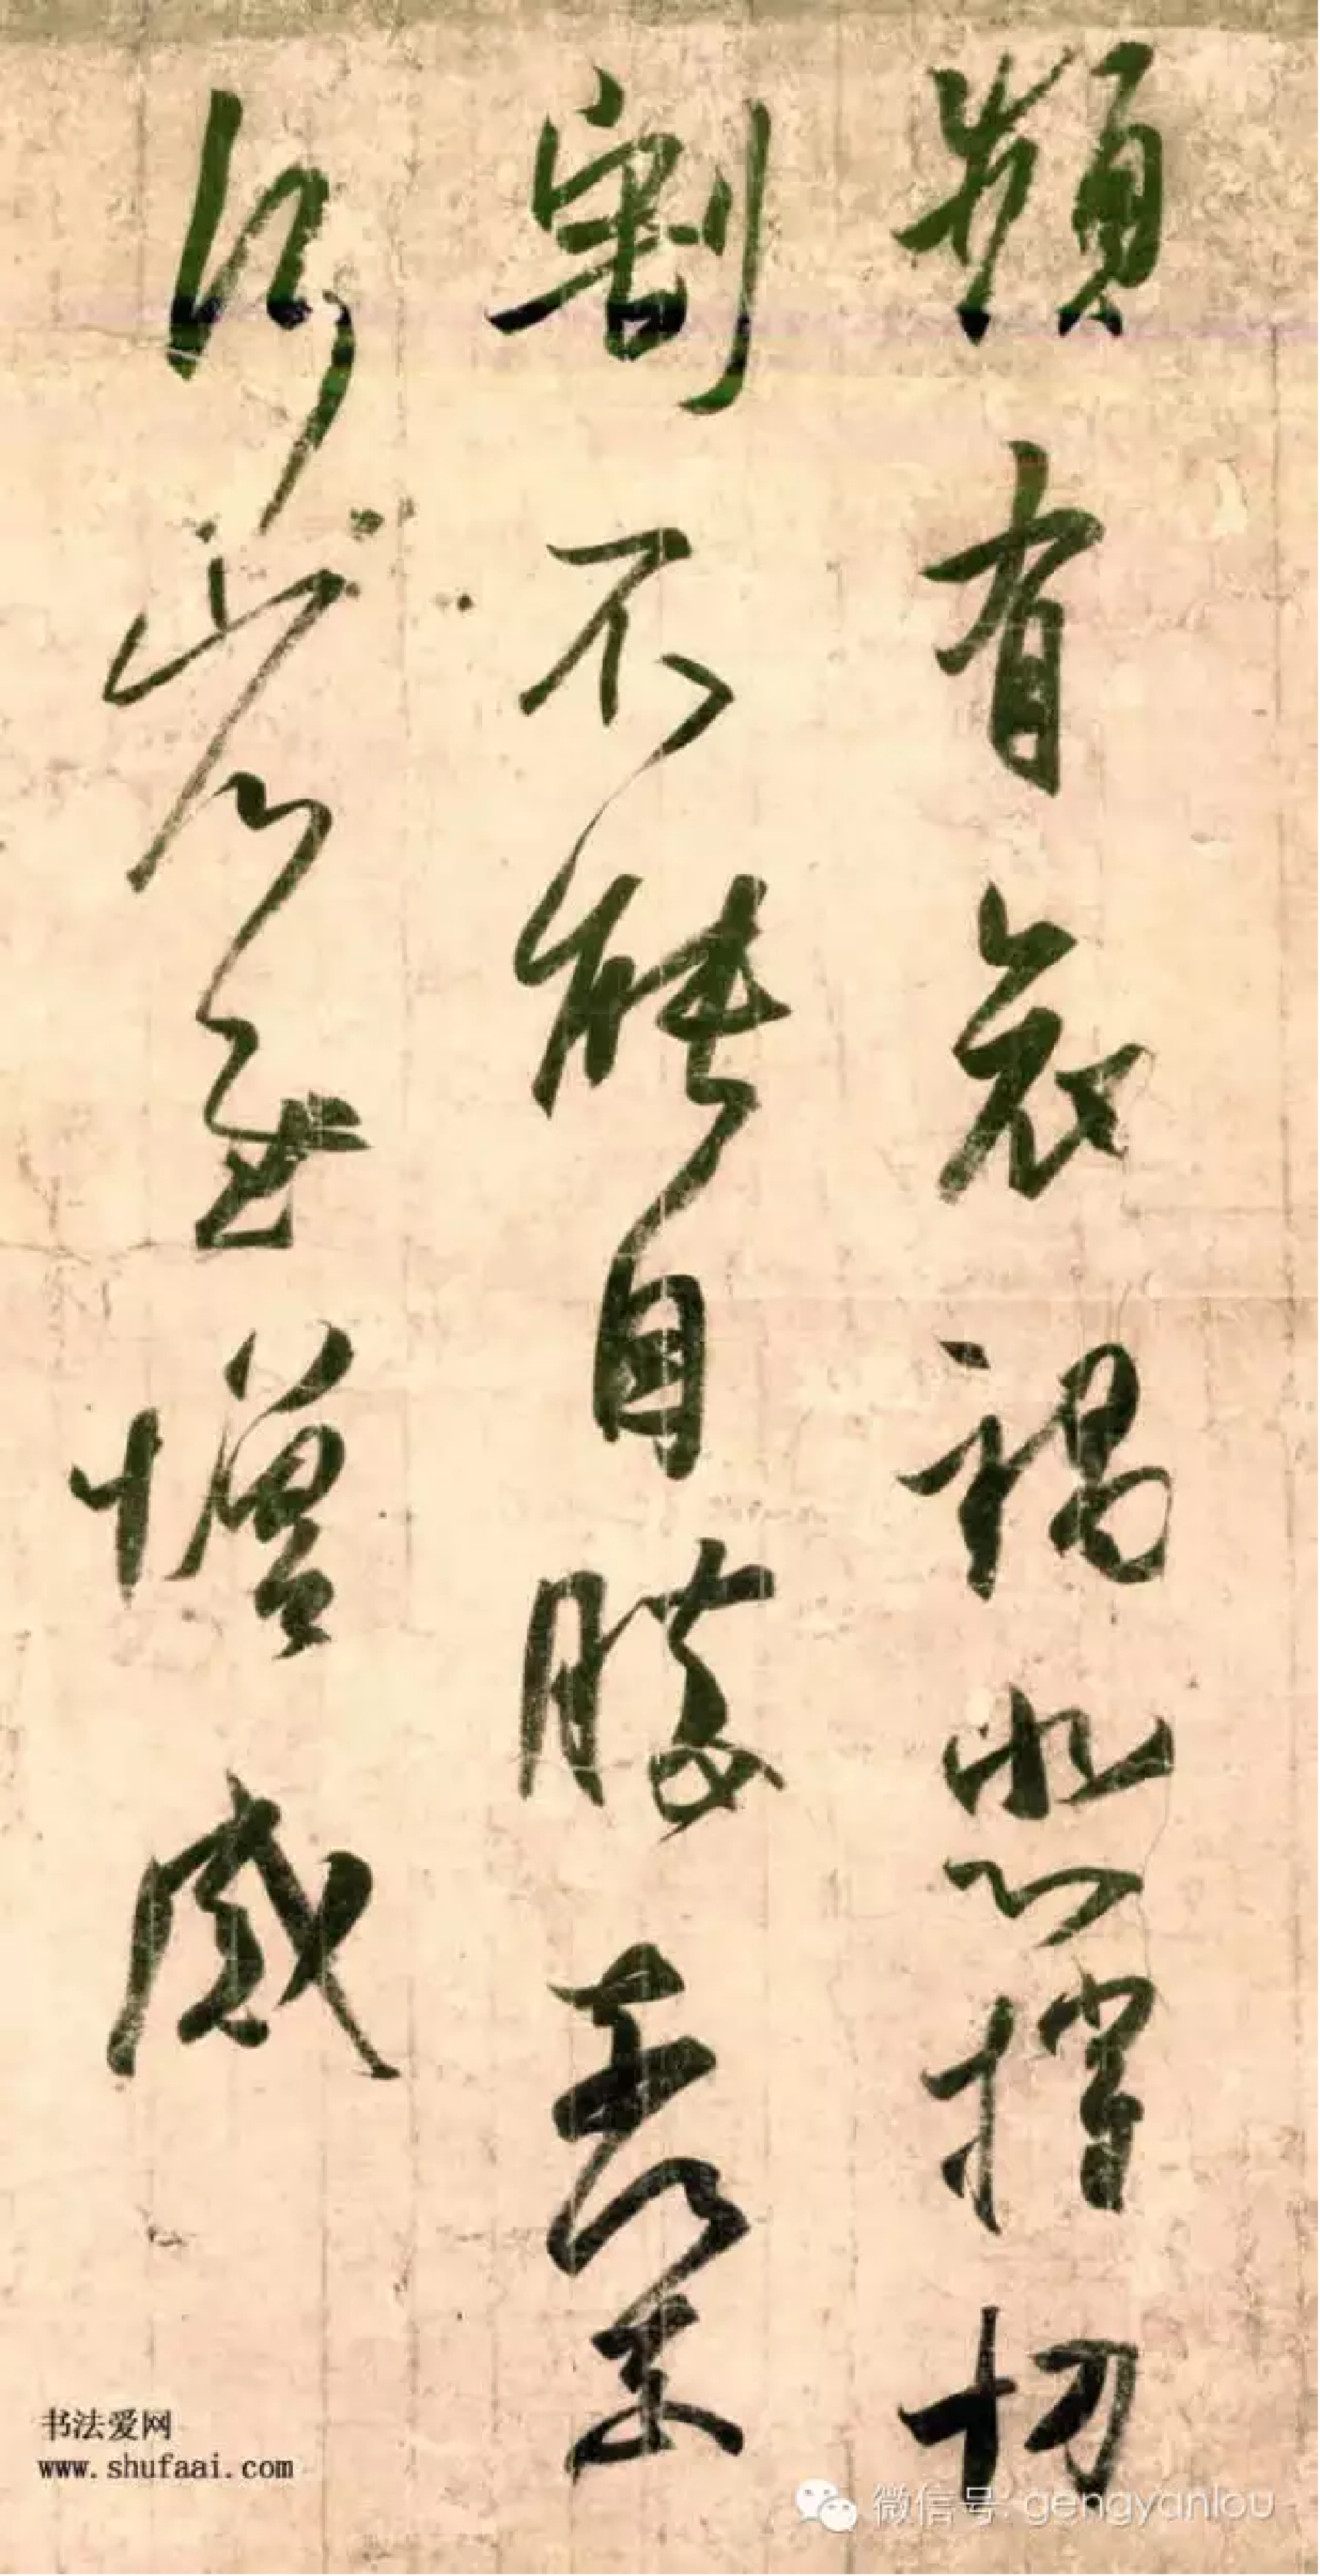 頻有哀禍悲摧切
割不能自勝奈何奈
何省慰增感
书法爱网
www.shufaai.com
微信号: gengyanlou